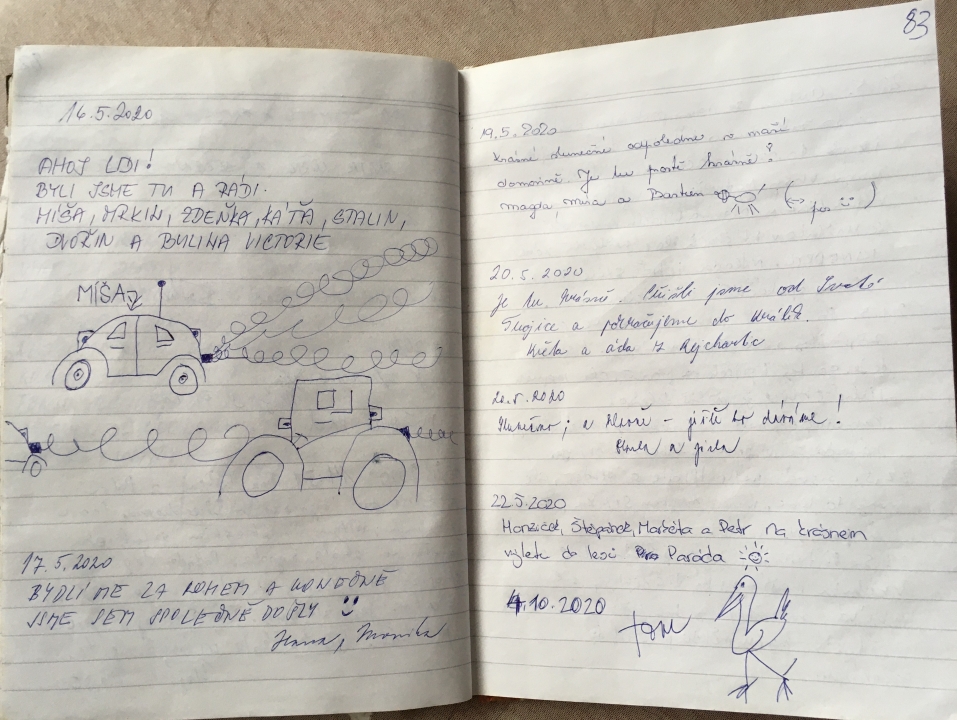 16.5.2020
AHOJ LDI!
BYLI JSME TU A RÁDI.
MÍŠA, MRKIN, ZDEŇKA, KÁŤA, STALIN,
DVOŘIN A BYLINA VICTORIE
MÍŠA
17.5.2020
BYDLÍME ZA ROHEM A KONEČNĚ
JSME SEM SPOLEČNĚ DOŠLY
Hana, Monika
83
19.5.2020
krásné slunečné odpoledne v
Je tu prostě krásně!
magda, a
pes
20.5.2020
Je tu krásně. Přišli jsme od Svaté
Trojice a pokračujeme do
Květa a áda z
5.2020
; a - ještě to dáváme!
a
22.5.2020
Honzíček, Štěpánek, Markéta a Petr na krásném
výletě do lesa Paráda
4.10.2020
Tom